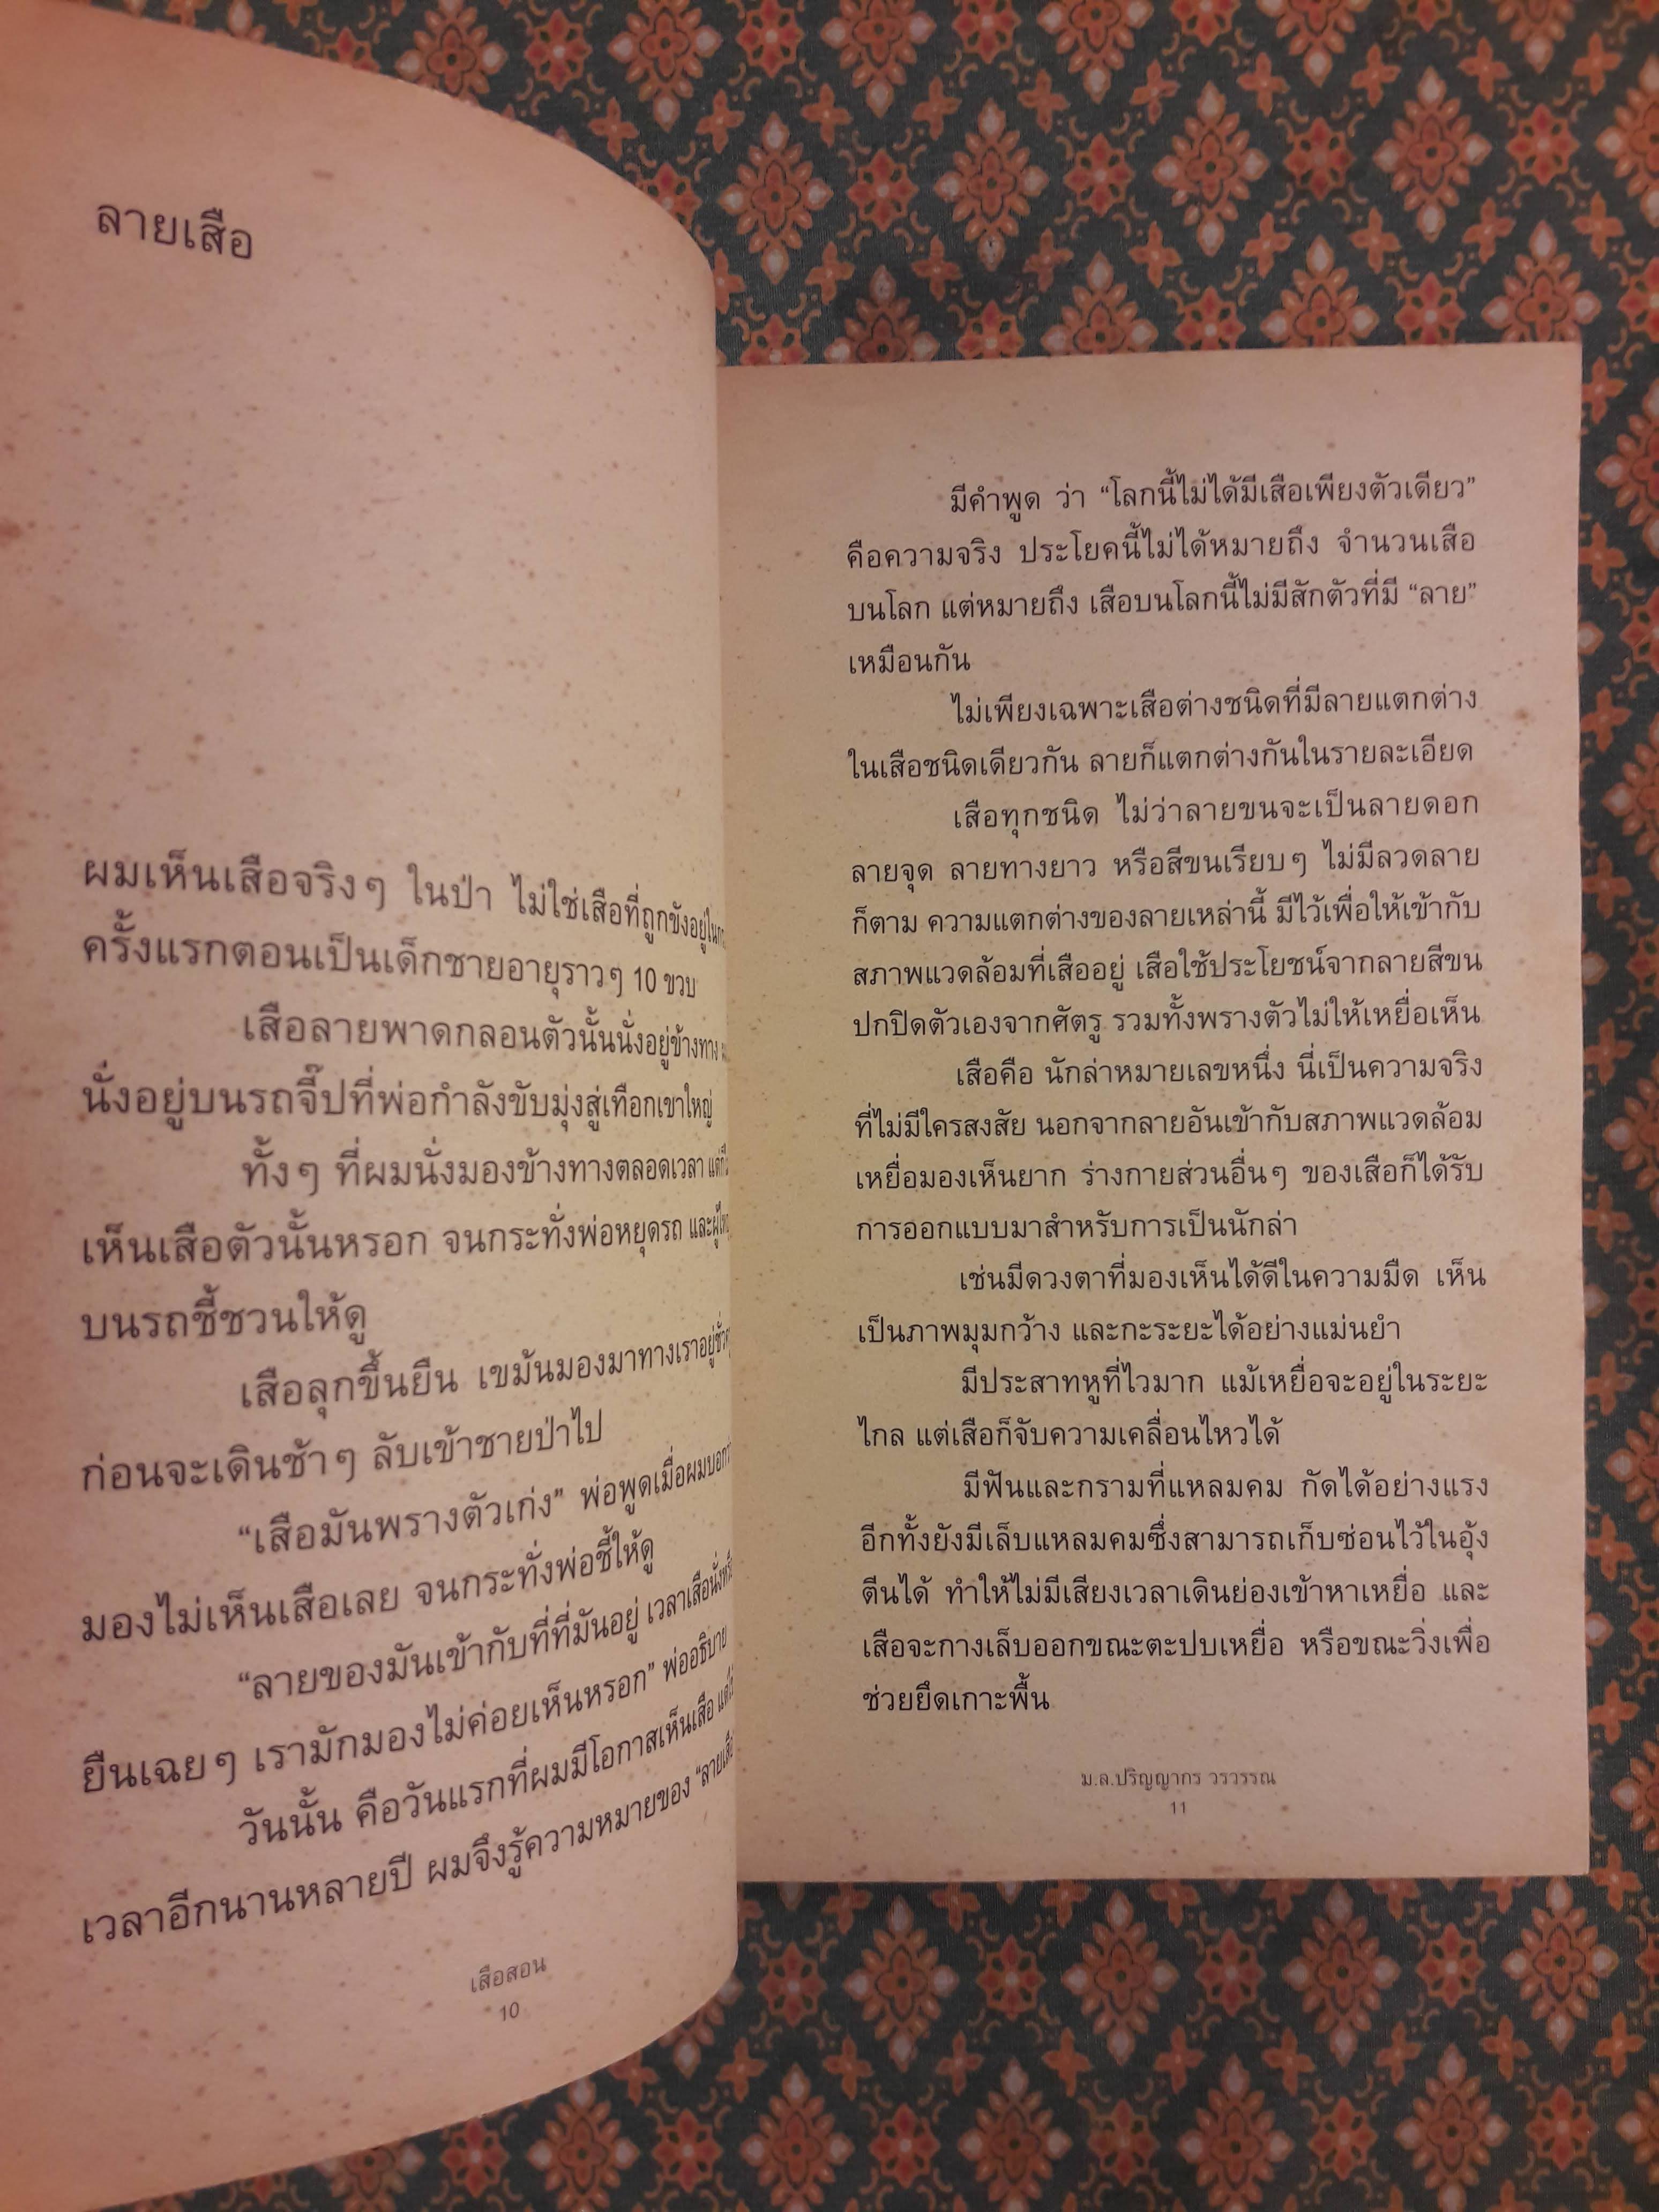 ลายเสือ
ผมเห็นเสือจริงๆ ในป่า ไม่ใช่เสือที่ถูกขังอยู่ใน
ครั้งแรกตอนเป็นเด็กชายอายุราวๆ 10 ขวบ
เสือลายพาดกลอนตัวนั้นนั่งอยู่ข้างทาง
นั่งอยู่บนรถจี๊ปที่พ่อกำลังขับมุ่งสู่เทือกเขาใหญ่
ทั้งๆ ที่ผมนั่งมองข้างทางตลอดเวลา
เห็นเสือตัวนั้นหรอก จนกระทั่งพ่อหยุดรถ
บนรถชี้ชวนให้ดู
เสือลุกขึ้นยืน เขม้นมองมาทางเราอยู่
ก่อนจะเดินช้าๆ ลับเข้าชายป่าไป
“เสือมันพรางตัวเก่ง” พ่อพูดเมื่อผมบอก
มองไม่เห็นเสือเลย จนกระทั่งพ่อชี้ให้ดู
“ลายของมันเข้ากับที่ที่มันอยู่ เวลาเสือนั่ง
ยืนเฉยๆ เรามักมองไม่ค่อยเห็นหรอก” พ่ออธิบาย
วันนั้น คือวันแรกที่ผมมีโอกาสเห็นเสือ
เวลาอีกนานหลายปี ผมจึงรู้ความหมายของ
เสือสอน
10
มีคำพูด ว่า “โลกนี้ไม่ได้มีเสือเพียงตัวเดียว”
คือความจริง ประโยคนี้ไม่ได้หมายถึง จำนวนเสือ
บนโลก แต่หมายถึง เสือบนโลกนี้ไม่มีสักตัวที่มี “ลาย”
เหมือนกัน
ไม่เพียงเฉพาะเสือต่างชนิดที่มีลายแตกต่าง
ในเสือชนิดเดียวกัน ลายก็แตกต่างกันในรายละเอียด
เสือทุกชนิด ไม่ว่าลายขนจะเป็นลายดอก
ลายจุด ลายทางยาว หรือสีขนเรียบๆ ไม่มีลวดลาย
ก็ตาม ความแตกต่างของลายเหล่านี้ มีไว้เพื่อให้เข้ากับ
สภาพแวดล้อมที่เสืออยู่ เสือใช้ประโยชน์จากลายสีขน
ปกปิดตัวเองจากศัตรู รวมทั้งพรางตัวไม่ให้เหยื่อเห็น
เสือคือ นักล่าหมายเลขหนึ่ง นี่เป็นความจริง
ที่ไม่มีใครสงสัย นอกจากลายอันเข้ากับสภาพแวดล้อม
เหยื่อมองเห็นยาก ร่างกายส่วนอื่นๆ ของเสือก็ได้รับ
การออกแบบมาสำหรับการเป็นนักล่า
เช่นมีดวงตาที่มองเห็นได้ดีในความมืด เห็น
เป็นภาพมุมกว้าง และกะระยะได้อย่างแม่นยำ
มีประสาทหูที่ไวมาก แม้เหยื่อจะอยู่ในระยะ
ไกล แต่เสือก็จับความเคลื่อนไหวได้
มีฟันและกรามที่แหลมคม กัดได้อย่างแรง
อีกทั้งยังมีเล็บแหลมคมซึ่งสามารถเก็บซ่อนไว้ในอุ้ง
ตีนได้ ทำให้ไม่มีเสียงเวลาเดินย่องเข้าหาเหยื่อ และ
เสือจะกางเล็บออกขณะตะปบเหยื่อ หรือขณะวิ่งเพื่อ
ช่วยยึดเกาะพื้น
ม.ล.ปริญญากร วรวรรณ
11